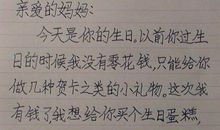 亲爱的妈妈:
今天是你的生日。以前你过生
日的时候我没有零花钱,只能给你
做几种贺卡之类的小礼物。这次我
有钱了我想给你买个生日蛋糕,